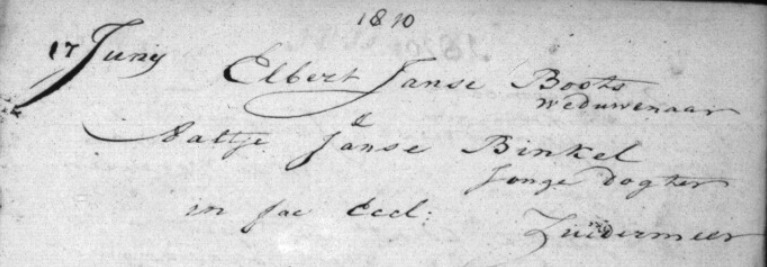 1810
17 Juny Elbert Janse Boots
Weduwenaar
&
Aaltje Janse Binkel
Jonge dogter
in fac Eccl: Zuidermeer